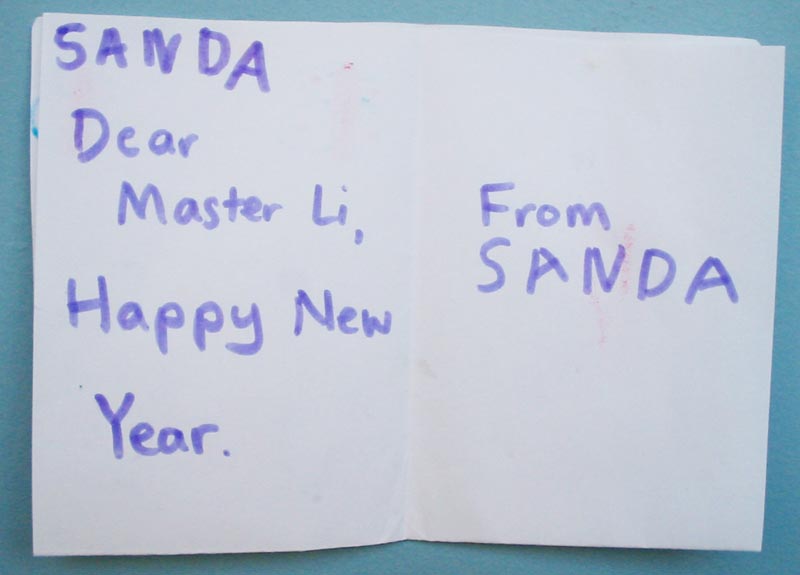 SANDA
Dear
Master Li,
Happy New
Year.
From
SANDA